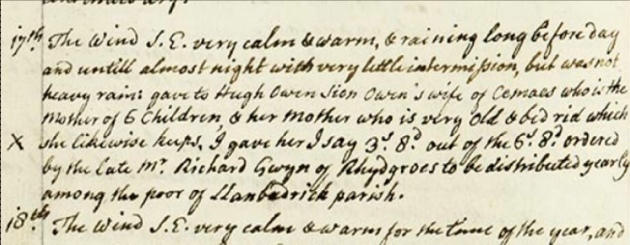 17th. The Wind S.E. very calm & warm, & raining long before day
and untill almost night with very little intermission, but was not
heavy rain: gave to Hugh Owen Sion Owen's wife of Cemaes who is the
Mother of 6 Children & her Mother who is very Old & bed rid which
X she likewise keeps, I gave her I say 3s. 8d. out of the 6s. 8d. ordered
by the late Mr. Richard Gwyn of Rhydgroes to be distributed yearly
among the poor of Llanbadrick parish.
18th. The Wind S.E. very calm & warm for the time of the year, and